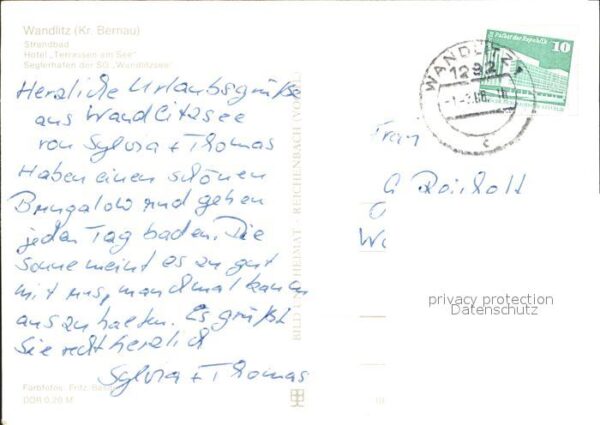 Wandlitz (Kr. Bernau)
Strandbad
Hotel „Terrassen am See"
Seglerhafen der SG „Wandlitzsee"
Herzliche Urlaubsgrüße
aus Wandlitzsee
von Sylvia + Thomas
Haben einen schönen
Bungalow und gehen
jeden Tag baden. Die
Sonne meint es zu gut
mit uns, manchmal kaum
auszuhalten. Es grüßt
Sie recht herzlich
Sylvia + Thomas
Farbfotos: Fritz
DDR 0,20 M
BILD UND HEIMAT · REICHENBACH (VOGTL)
Palast der Republik 10
WANDLITZ
1292
c
Frau
G.
privacy protection
Datenschutz